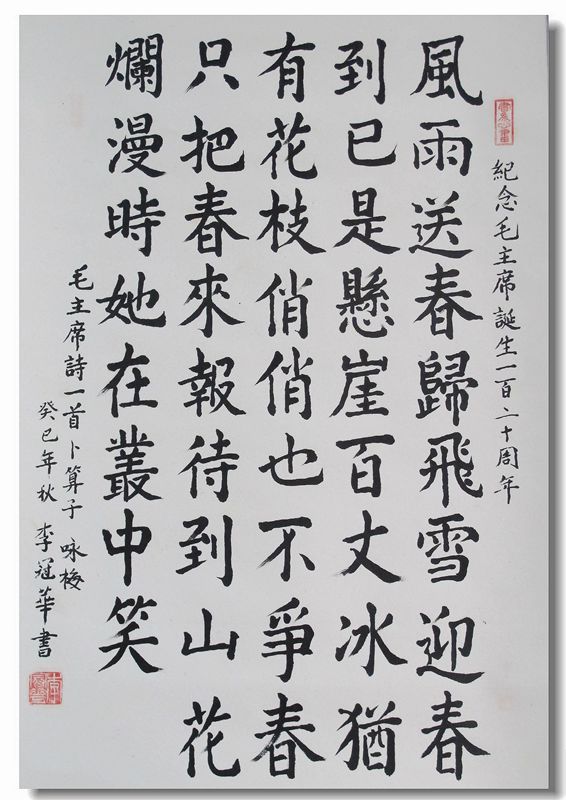 紀念毛主席誕生一百二十周年
風雨送春歸飛雪迎春
到已是懸崖百丈冰猶
有花枝俏俏也不爭春
只把春來報待到山花
爛漫時她在叢中笑
毛主席詩一首卜算子 咏梅
癸巳年秋 李冠華書